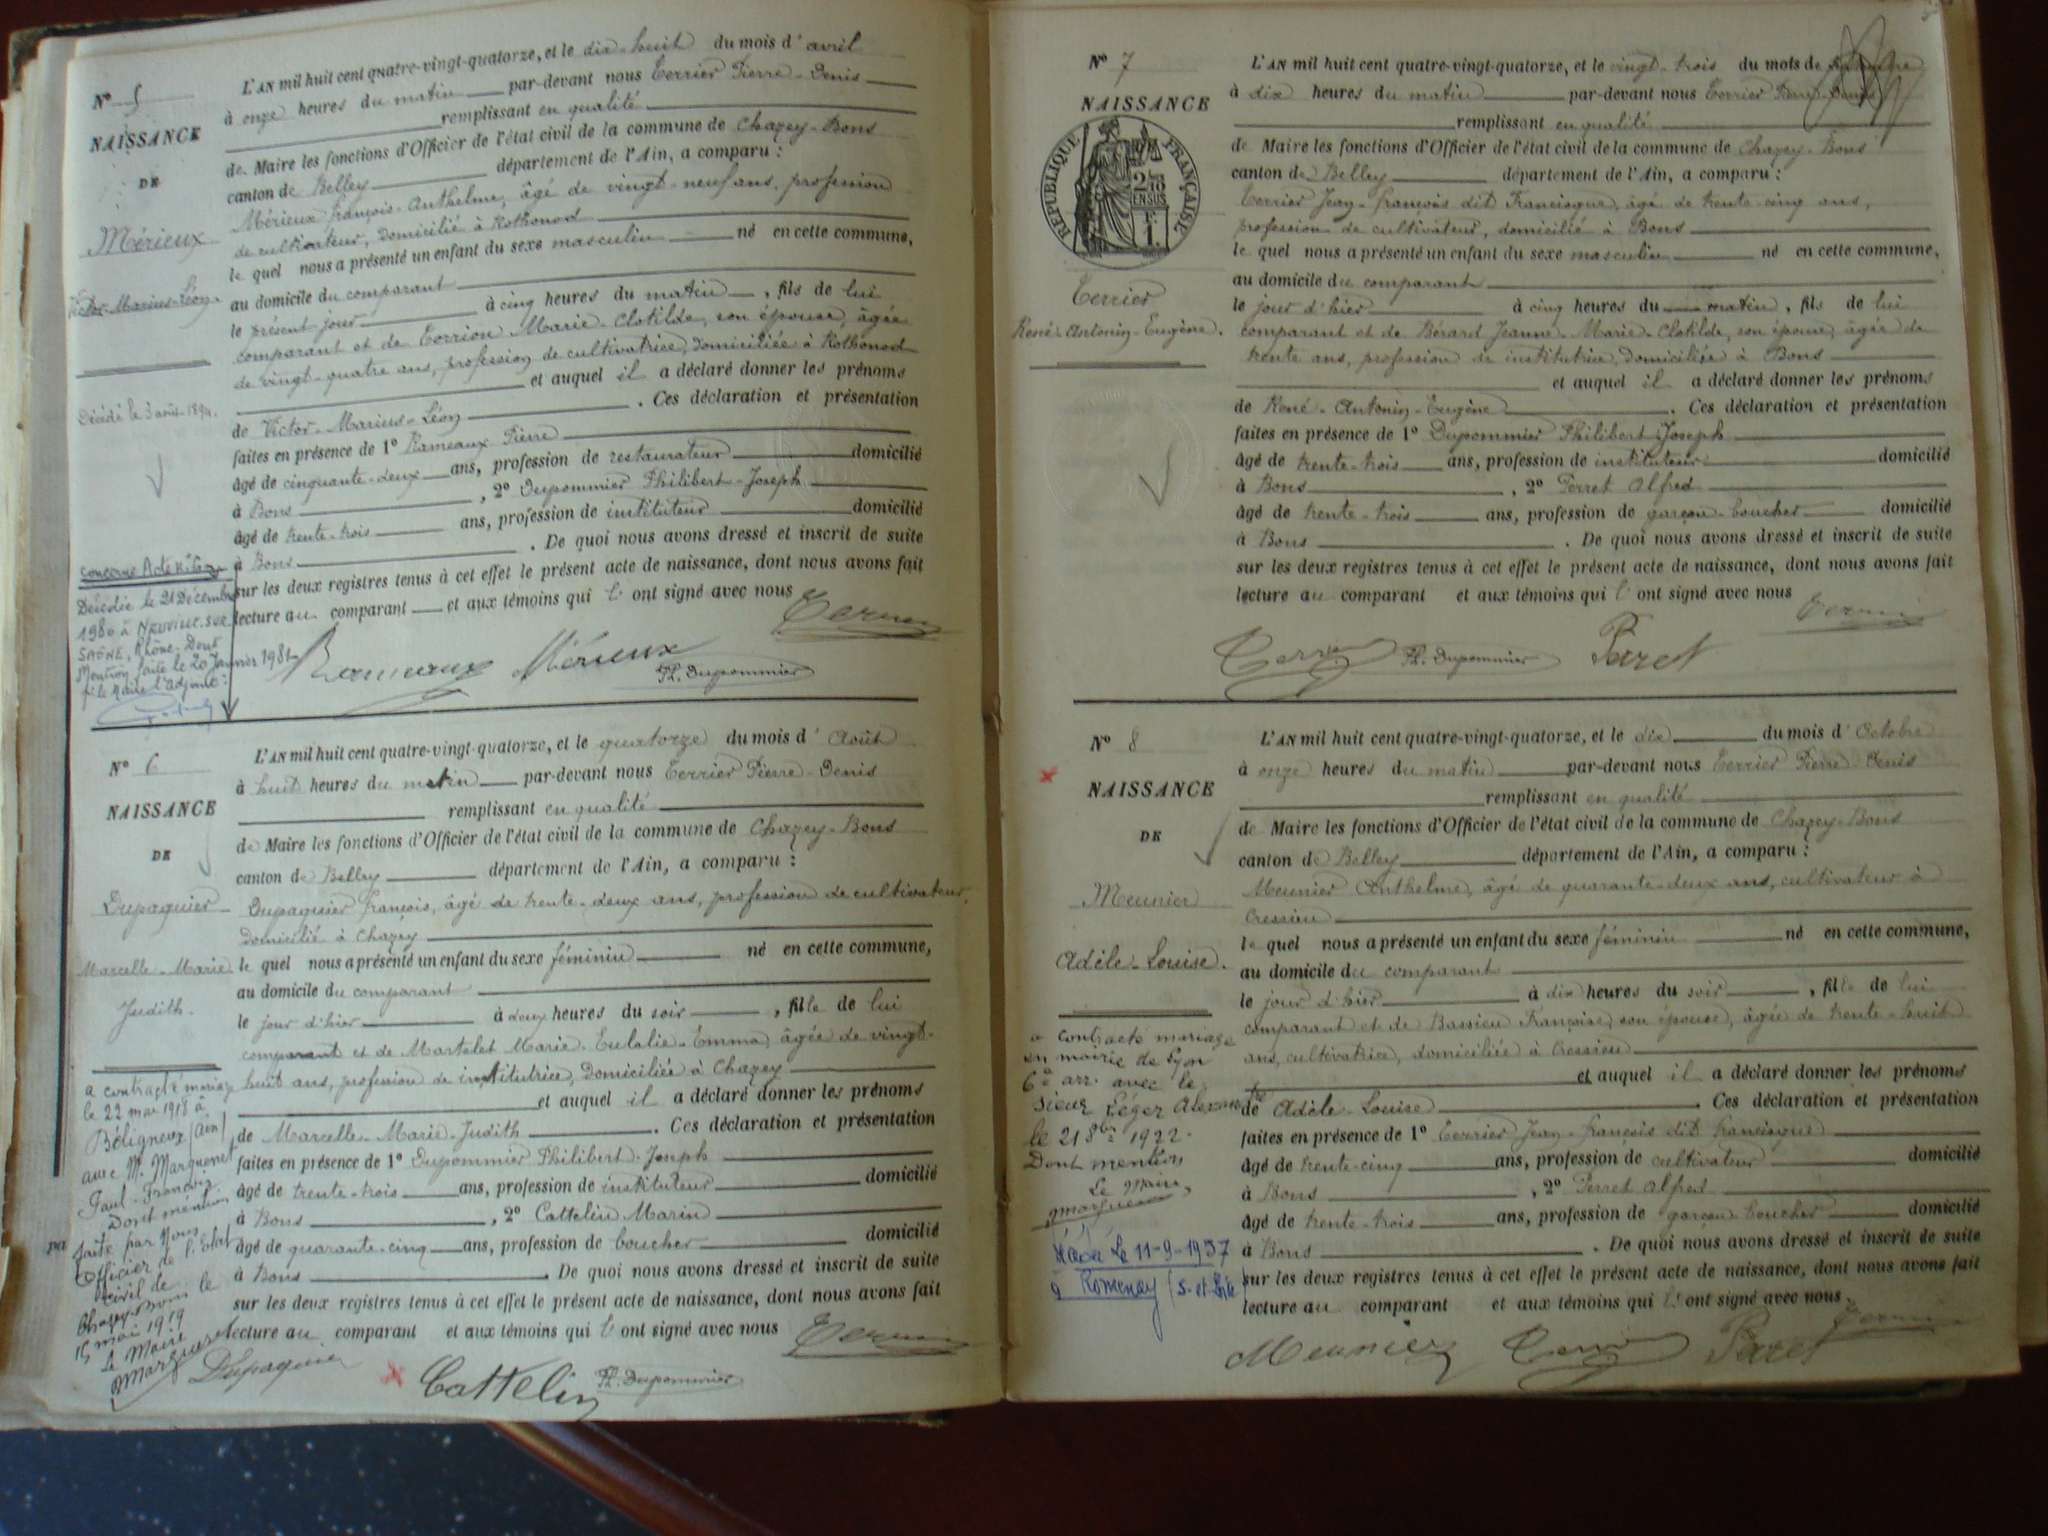 N° 5
NAISSANCE
DE
Mérieux
Victor-Marius-Léon
Décédé le 3 août 1894.
concerne Acte N° 6
Décédée le 21 Décembre
1980 à NEUVILLE-SUR
SAÔNE, Rhône. Dont
Mention faite le 20 Janvier 1981
p. le Maire l'adjoint :
L'AN mil huit cent quatre-vingt-quatorze, et le dix-huit du mois d'avril
à onze heures du matin par-devant nous Terrier Pierre-Denis
remplissant en qualité
de Maire les fonctions d'Officier de l'état civil de la commune de Chazey-Bons
canton de Belley département de l'Ain, a comparu :
Mérieux François-Anthelme, âgé de vingt-neuf ans, profession
de cultivateur, domicilié à Rothonod
le quel nous a présenté un enfant du sexe masculin né en cette commune,
au domicile du comparant
le présent jour à cinq heures du matin, fils de lui
comparant et de Corrion Marie-Clotilde, son épouse, âgée
de vingt-quatre ans, profession de cultivatrice, domiciliée à Rothonod
et auquel il a déclaré donner les prénoms
de Victor-Marius-Léon. Ces déclaration et présentation
faites en présence de 1° Rameaux Pierre
âgé de cinquante-deux ans, profession de restaurateur domicilié
à Bons, 2° Dupommier Philibert-Joseph
âgé de trente-trois ans, profession de instituteur domicilié
à Bons. De quoi nous avons dressé et inscrit de suite
sur les deux registres tenus à cet effet le présent acte de naissance, dont nous avons fait
lecture au comparant et aux témoins qui l'ont signé avec nous
Terrier
Rameaux Mérieux Ph. Dupommier
N° 6
NAISSANCE
DE
Dupaquier
Marcelle-Marie
Judith.
a contracté mariage
le 22 mai 1918 à
Béligneux (Ain)
avec M. Marguenet
Paul-François
Dont mention
faite par Nous
Officier de l'Etat
civil de
Chazey-Bons le
15 mai 1919
Le Maire
L'AN mil huit cent quatre-vingt-quatorze, et le quatorze du mois d'Août
à huit heures du matin par-devant nous Terrier Pierre-Denis
remplissant en qualité
de Maire les fonctions d'Officier de l'état civil de la commune de Chazey-Bons
canton de Belley département de l'Ain, a comparu :
Dupaquier François, âgé de trente-deux ans, profession de cultivateur,
domicilié à Chazey
le quel nous a présenté un enfant du sexe féminin né en cette commune,
au domicile du comparant
le jour d'hier à deux heures du soir, fille de lui
comparant et de Martelet Marie-Eulalie-Emma, âgée de vingt-
huit ans, profession de institutrice, domiciliée à Chazey
et auquel il a déclaré donner les prénoms
de Marcelle-Marie-Judith. Ces déclaration et présentation
faites en présence de 1° Dupommier Philibert-Joseph
âgé de trente-trois ans, profession de instituteur domicilié
à Bons, 2° Cattelin Marin
âgé de quarante-cinq ans, profession de boucher domicilié
à Bons. De quoi nous avons dressé et inscrit de suite
sur les deux registres tenus à cet effet le présent acte de naissance, dont nous avons fait
lecture au comparant et aux témoins qui l'ont signé avec nous
Terrier
Dupaquier Cattelin Ph. Dupommier
N° 7
NAISSANCE
RÉPUBLIQUE FRANÇAISE
2/10 EN SUS
Terrier
René-Antonin-Eugène.
L'AN mil huit cent quatre-vingt-quatorze, et le vingt-trois du mois de
à dix heures du matin par-devant nous Terrier Pierre-Denis
remplissant en qualité
de Maire les fonctions d'Officier de l'état civil de la commune de Chazey-Bons
canton de Belley département de l'Ain, a comparu :
Terrier Jean-François dit Francisque, âgé de trente-cinq ans,
profession de cultivateur, domicilié à Bons
le quel nous a présenté un enfant du sexe masculin né en cette commune,
au domicile du comparant
le jour d'hier à cinq heures du matin, fils de lui
comparant et de Bérard Jeanne-Marie-Clotilde, son épouse, âgée de
trente ans, profession de institutrice, domiciliée à Bons
et auquel il a déclaré donner les prénoms
de René-Antonin-Eugène. Ces déclaration et présentation
faites en présence de 1° Dupommier Philibert Joseph
âgé de trente-trois ans, profession de instituteur domicilié
à Bons, 2° Perret Alfred
âgé de trente-trois ans, profession de garçon-boucher domicilié
à Bons. De quoi nous avons dressé et inscrit de suite
sur les deux registres tenus à cet effet le présent acte de naissance, dont nous avons fait
lecture au comparant et aux témoins qui l'ont signé avec nous
Terrier
Terrier Ph. Dupommier Peret
N° 8
NAISSANCE
DE
Meunier
Adèle-Louise.
a contracté mariage
en mairie de Lyon
6e arr. avec le
sieur Léger Alexandre
le 21 8bre 1922.
Dont mention
Le Maire,
Décédé le 11-9-1937
à Romenay (S-et-Loire)
L'AN mil huit cent quatre-vingt-quatorze, et le dix du mois d'Octobre
à onze heures du matin par-devant nous Terrier Pierre Denis
remplissant en qualité
de Maire les fonctions d'Officier de l'état civil de la commune de Chazey-Bons
canton de Belley département de l'Ain, a comparu :
Meunier Anthelme, âgé de quarante-deux ans, cultivateur à
Cressieu
le quel nous a présenté un enfant du sexe féminin né en cette commune,
au domicile du comparant
le jour d'hier à dix heures du soir, fille de lui
comparant et de Bassieu Françoise, son épouse, âgée de trente-huit
ans, cultivatrice, domiciliée à Cressieu
et auquel il a déclaré donner les prénoms
de Adèle-Louise. Ces déclaration et présentation
faites en présence de 1° Terrier Jean-François dit Francisque
âgé de trente-cinq ans, profession de cultivateur domicilié
à Bons, 2° Perret Alfred
âgé de trente-trois ans, profession de garçon-boucher domicilié
à Bons. De quoi nous avons dressé et inscrit de suite
sur les deux registres tenus à cet effet le présent acte de naissance, dont nous avons fait
lecture au comparant et aux témoins qui l'ont signé avec nous
Terrier
Meunier Terrier Peret